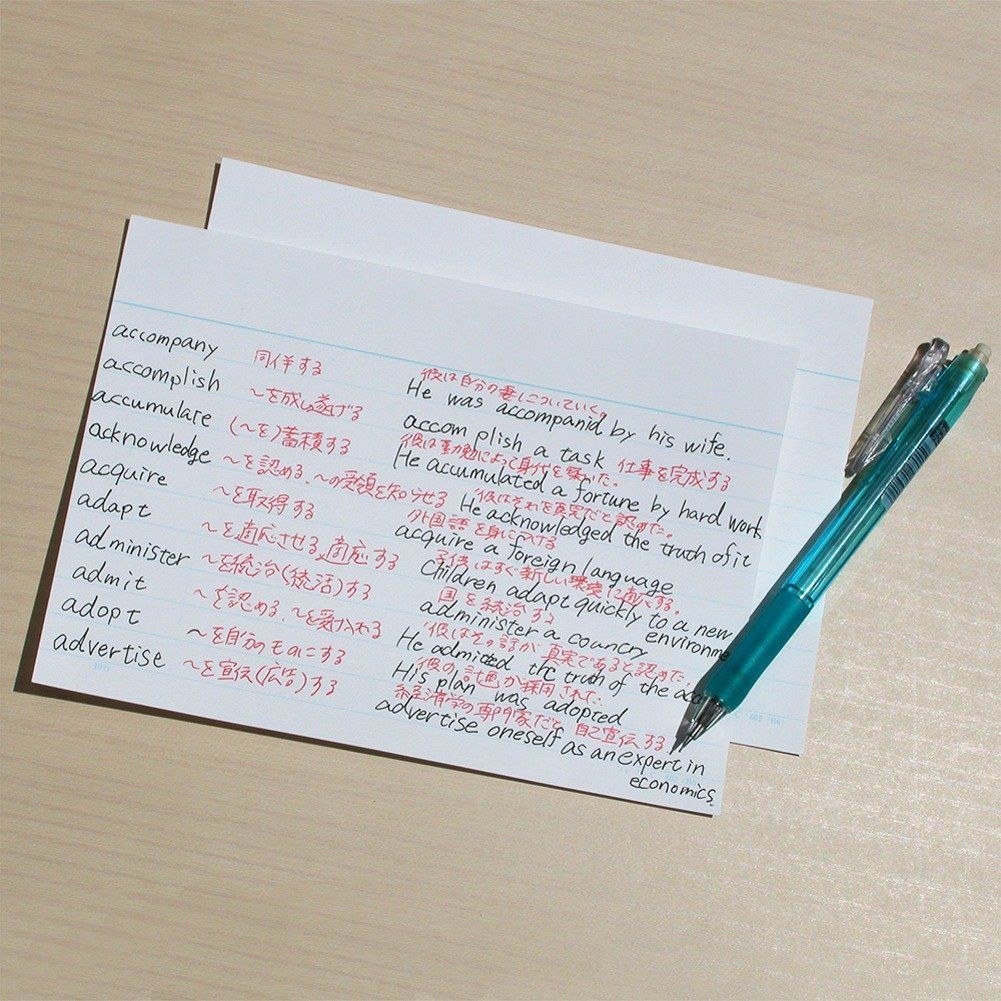 accompany 同伴する
accomplish 〜を成し遂げる
accumulate (〜を)蓄積する
acknowledge 〜を認める、〜の受領を知らせる
acquire 〜を取得する
adapt 〜を適応させる、適応する
administer 〜を統治(統活)する
admit 〜を認める、〜を受け入れる
adopt 〜を自分のものにする
advertise 〜を宣伝(広告)する
彼は自分の妻についていく。
He was accompanid by his wife.
accomplish a task 仕事を完成する
彼は勤勉によって身代を築いた。
He accumulated a fortune by hard work
彼はそれを真実だと認めた。
He acknowledged the truth of it
外国語を身につける
acquire a foreign language
子供はすぐ新しい環境に適応する。
Children adapt quickly to a new
environme
国を統治する
administer a country
彼はその話が真実であると認めた。
He admitted the truth of the
彼の計画が採用された
His plan was adopted
経済学の専門家だと自己宣伝する
advertise oneself as an expert in
economics.
602